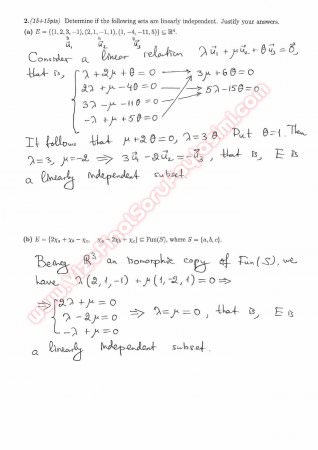 2.(15+15pts) Determine if the following sets are linearly independent. Justify your answers.
(a) E = {(1, 2, 3, −1), (2, 1, −1, 1), (1, −4, −11, 5)} ⊆ R⁴.
u⃗₁ u⃗₂ u⃗₃
Consider a linear relation λu⃗₁ + μu⃗₂ + θu⃗₃ = 0⃗,
that is, λ + 2μ + θ = 0 → 3μ + 6θ = 0
2λ + μ − 4θ = 0 5λ − 15θ = 0
3λ − μ − 11θ = 0
−λ + μ + 5θ = 0
It follows that μ + 2θ = 0, λ = 3θ. Put θ = 1. Then
λ = 3, μ = −2 ⇒ 3u⃗₁ − 2u⃗₂ = −u⃗₃, that is, E is
a linearly independent subset.
(b) E = {2χₐ + χ_b − χ_c, χₐ − 2χ_b + χ_c} ⊆ Fun(S), where S = {a, b, c}.
Being R³ an isomorphic copy of Fun(S), we
have λ(2, 1, −1) + μ(1, −2, 1) = 0 ⇒
⇒ 2λ + μ = 0
λ − 2μ = 0 ⇒ λ = μ = 0, that is, E is
−λ + μ = 0
a linearly independent subset.